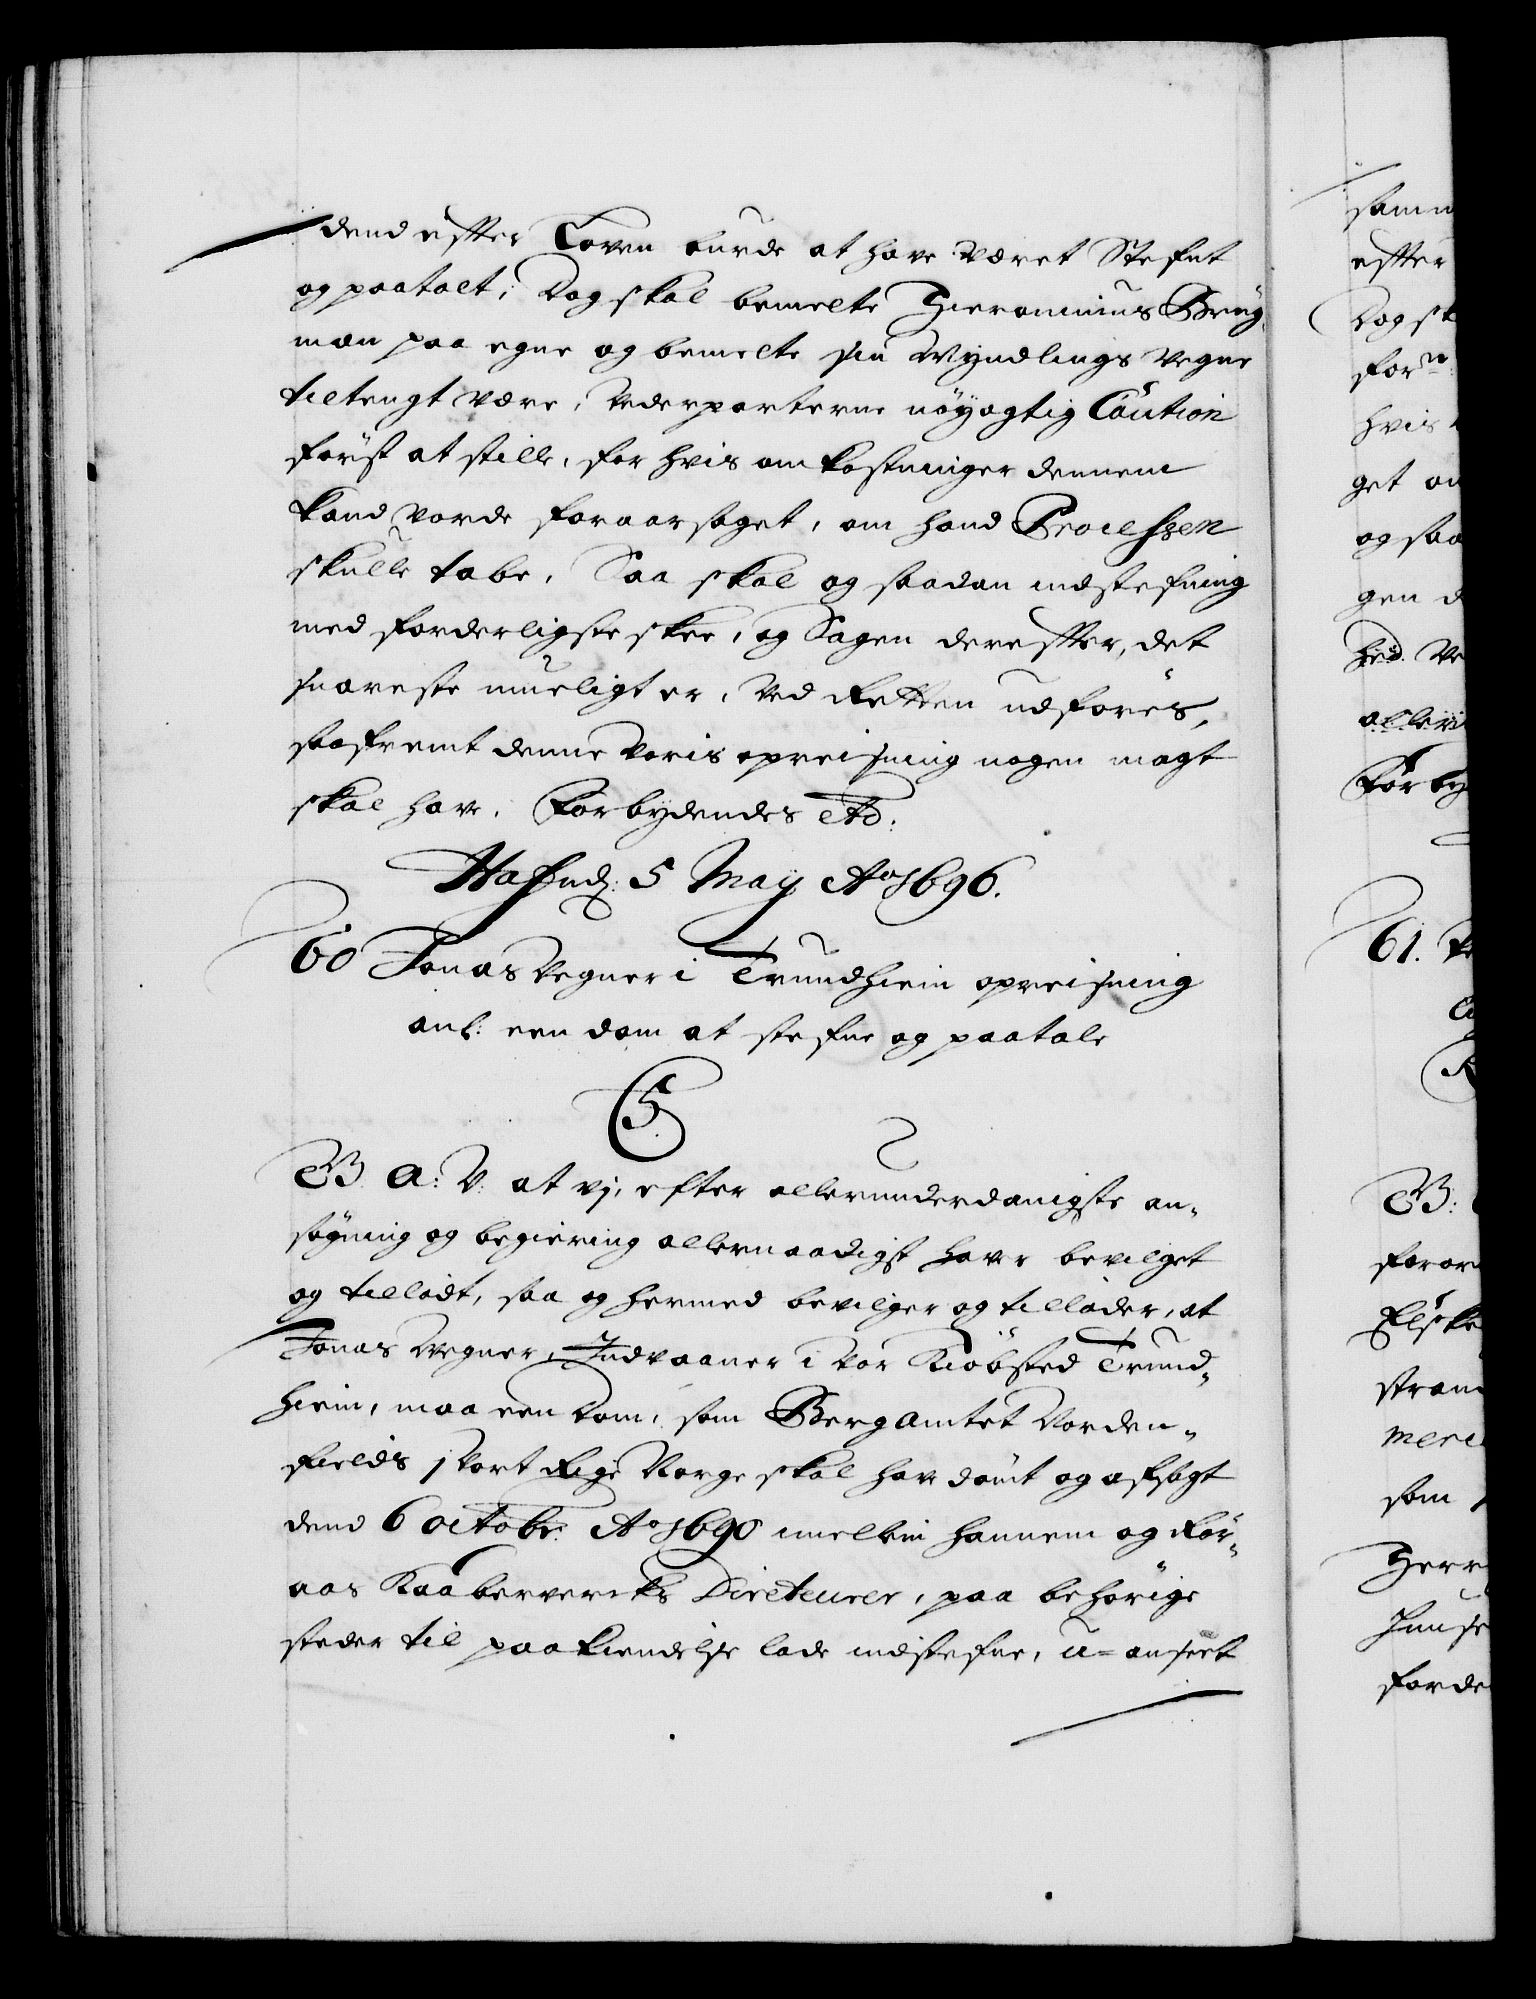 dend effter Loven burde at have været Stefnt
og paatalt; Dog skal bemelte Hieronimus Brüg,
man paa egne og bemelte sin Myndlings Vegne
tiltengt være, Vederparterne nöyagtig Caution
först at stille, for hvis omkostninger dennem
kand vorde foraarsaget, om hand Processen
skulle tabe, Saa skal og saadan indstefning
med forderligste skee, og Sagen dereffter, det
snareste mueligt er, ved Retten udföres,
saafremt denne Voris opreisning nogen magt
skal have. Forbydendes etc:
Hafnd: 5 May Ao 1696.
60 Jonas Vegner i Trundhiem opreisning
anl: een dom at stefne og paatale
C5
G. A: V: at vj, efter allerunderdanigste an„
søgning og begiering allernaadigst haver bevilget
og tilladt, saa og hermed bevilger og tillader, at
Jonas Vegner, Indvaaner i vor Kiöbsted Trund„
hiem, maa een Dom, som Bergamtet Norden„
fields i Vort Rige Norge skal have dömt og afsagt
dend 6 octobr: Ao 1690 imellem hannem og Rör„
aas Kaaberverks Direteurer, paa behörige
steder til paakiendelse lade indstefne, u=anseet
samm
effter
Dog sk
forne:
hvis
get
og saa
gen d
hed. Ve
allern
Forby
61.
G:
foror
Elske
stran
mere
som
Herr
huuse
forde